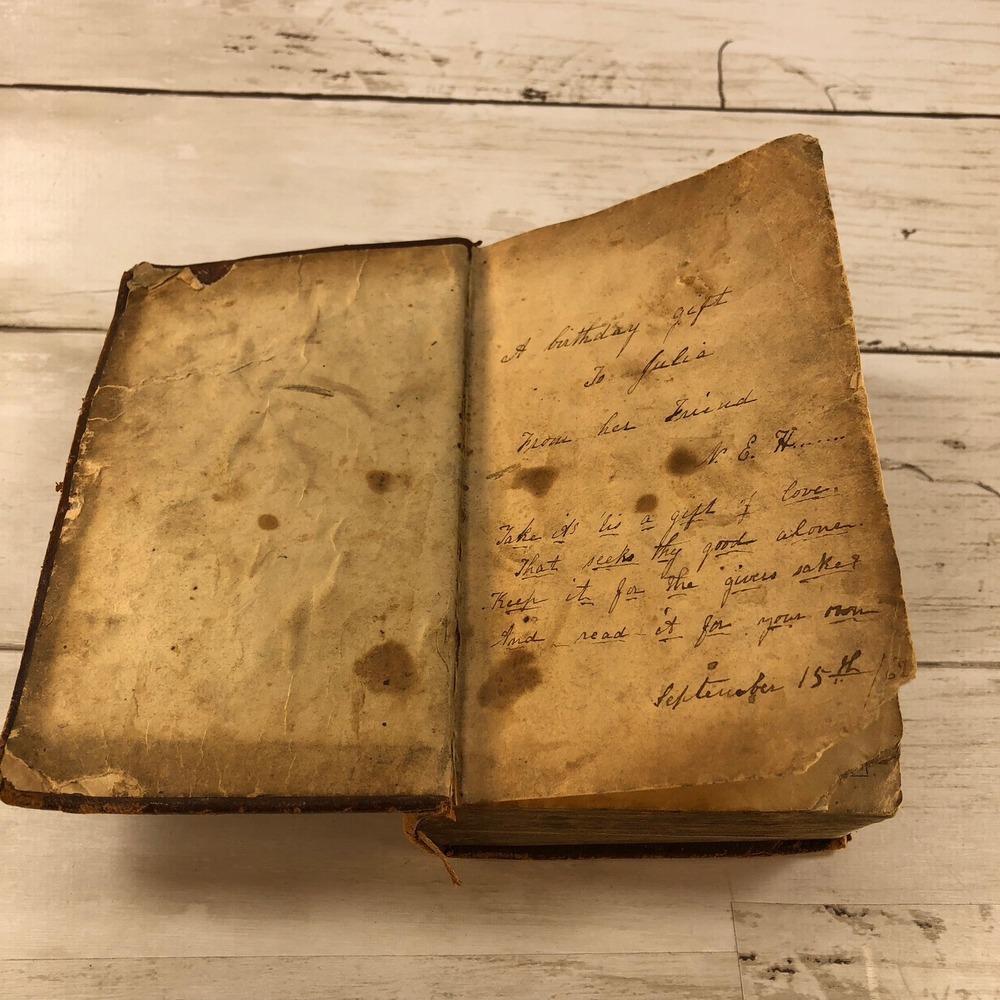 A birthday gift
To Julia
From her Friend
N. E. H......
Take it 'tis a gift of love.
That seeks thy good alone.
Keep it for the givers sake
And read it for your own
September 15th /62